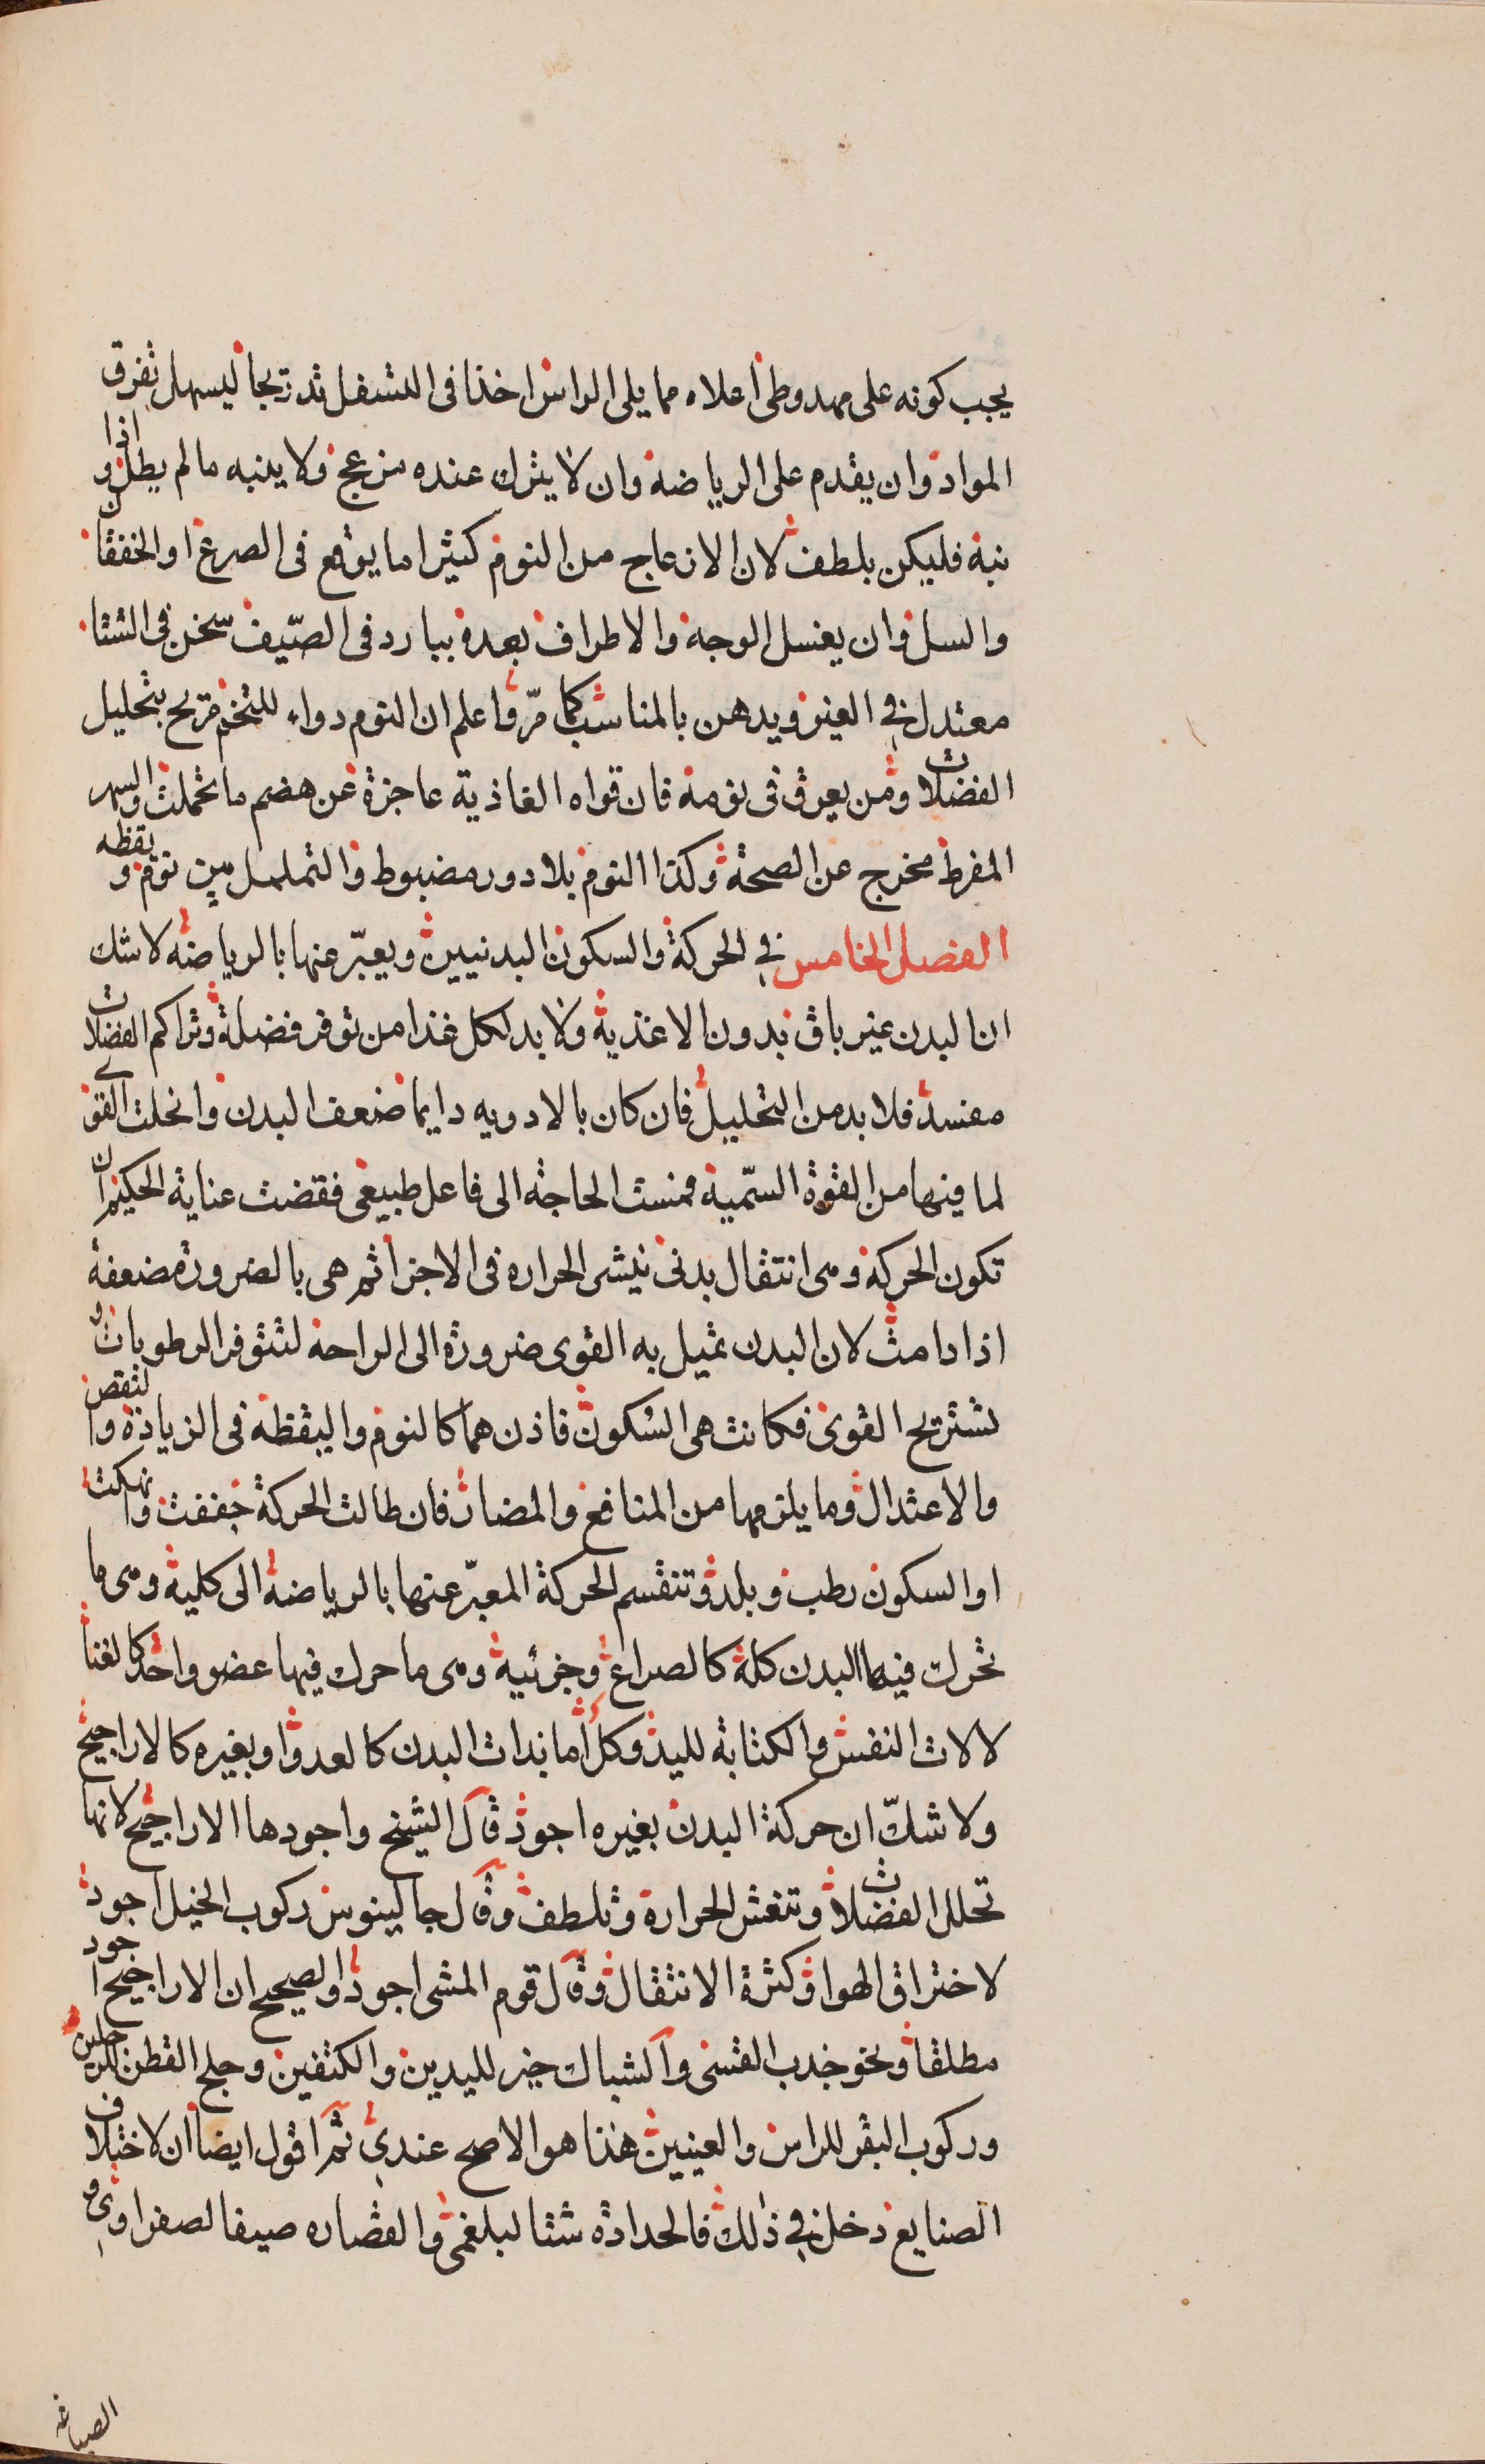 يجب كونه على مهد وطى اعلاه مما يلى الراس اخذا فى التسفل تدريجا ليسهل تفرق
المواد وان يقدم على الرياضة وان لا يترك عنده مزعج ولا ينبه ما لم يطل واذا
نبه فليكن بلطف لان الانزعاج من النوم كثيرا ما يوقع فى الصرع او الخفقان
والسل وان يغسل الوجه والاطراف بعده ببارد فى الصّيف سخن فى الشتا
معتدل في الغير ويدهن بالمناسب كما مرّ واعلم ان النوم دواء للتخم مريح بتحليل
الفضلات ومن يعرق فى نومه فان قواه الغاذية عاجزة عن هضم ما تحملت والسهر
المفرط مخرج عن الصحة وكذا النوم بلا دور مضبوط والتململ بين نوم ويقظه
الفصل الخامس في الحركة والسكون البدنيين ويعبّر عنها بالرياضه لا شك
ان البدن غير باق بدون الاغذية ولا بد لكل غذا من توفر فضلة وتراكم الفضلات
مفسد فلا بد من التحليل فان كان بالادويه دايما ضعف البدن وانحلت القوى
لما فيها من القوة السّمية فمست الحاجة الى فاعل طبيعى فقضت عناية الحكيم ان
تكون الحركة وهى انتقال بدنى ينشر الحراره فى الاجزا ثم هى بالضرورة مضعفة
اذا دامت لان البدن تميل به القوى ضرورة الى الراحة لتتوفر الرطوبات و
تستريح القوى فكانت هى السكون فاذن هما كالنوم واليقظة فى الزيادة والنقص
والاعتدال وما يلزمها من المنافع والمضار فان طالت الحركة جففت وانهكت
او السكون رطب وبلد وتنقسم الحركة المعبّر عنها بالرياضة الى كلية وهى ما
تحرك فيها البدن كله كالصراع وجزئية وهى ما حرك فيها عضو واحد كالغنا
لالات النفس والكتابة لليد وكل اما بذات البدن كالعدو او بغيره كالاراجيح
ولا شكّ ان حركة البدن بغيره اجود قال الشيخ واجودها الاراجيح لانها
تحلل الفضلات وتنعش الحرارة وتلطف وقال جالينوس ركوب الخيل اجود
لاختراق الهوا وكثرة الانتقال وقال قوم المشى اجود والصحيح ان الاراجيح اجود
مطلقا ونحو جذب القسى والشباك خير لليدين والكتفين وحلج القطن للرجلين
وركوب البقر للراس والعينين هذا هو الاصح عندي ثم اقول ايضا ان لاختلاف
الصنايع دخل في ذلك فالحدادة شتا لبلغمى والقصاره صيفا لصفراوى و
الصباغه